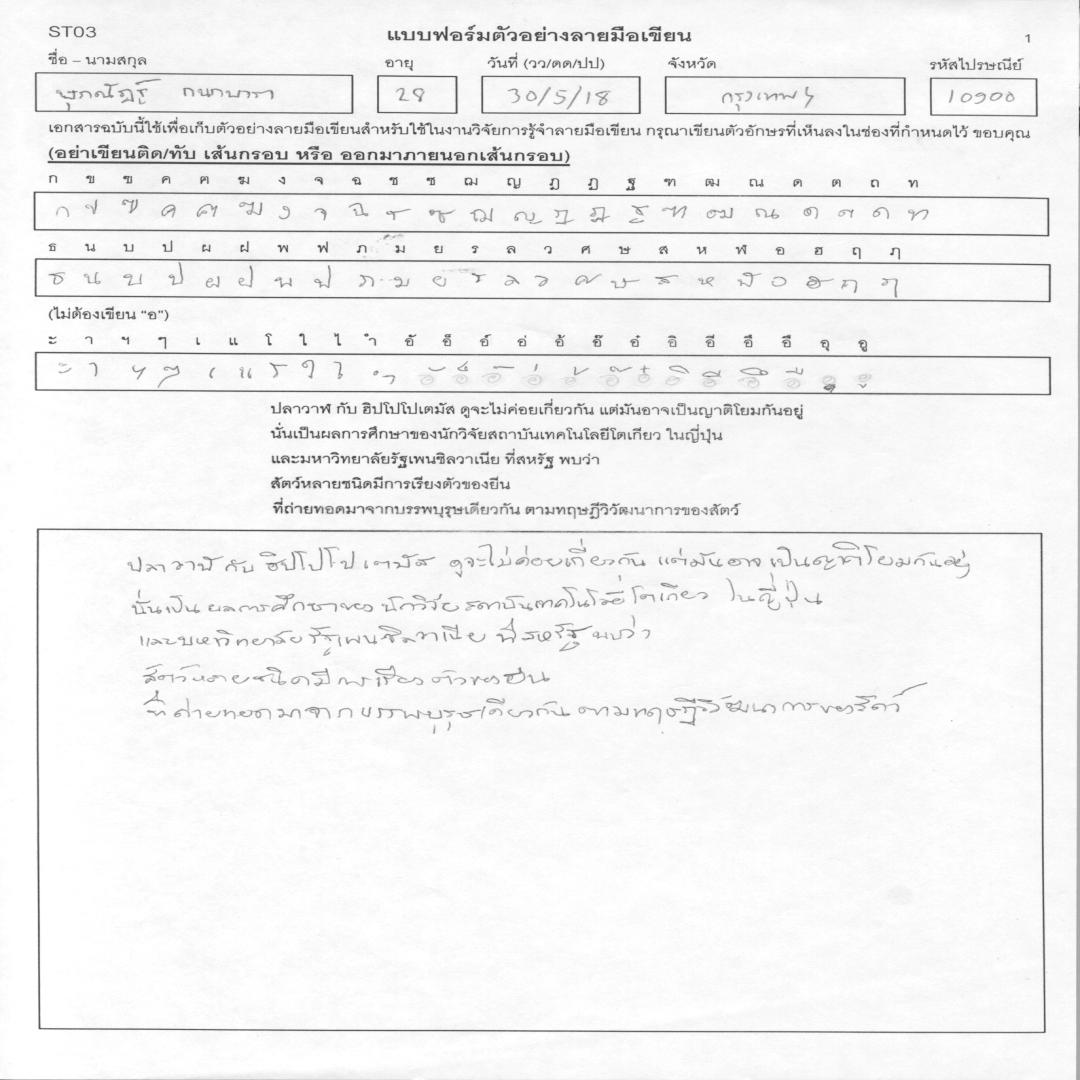 ST03
แบบฟอร์มตัวอย่างลายมือเขียน
1
ชื่อ – นามสกุล อายุ วันที่ (วว/ดด/ปป) จังหวัด รหัสไปรษณีย์
28 30/5/18 กรุงเทพฯ 10900
เอกสารฉบับนี้ใช้เพื่อเก็บตัวอย่างลายมือเขียนสำหรับใช้ในงานวิจัยการรู้จำลายมือเขียน กรุณาเขียนตัวอักษรที่เห็นลงในช่องที่กำหนดไว้ ขอบคุณ
(อย่าเขียนติด/ทับ เส้นกรอบ หรือ ออกมาภายนอกเส้นกรอบ)
ก ข ฃ ค ฅ ฆ ง จ ฉ ช ซ ฌ ญ ฎ ฏ ฐ ฑ ฒ ณ ด ต ถ ท
ก ข ฃ ค ฅ ฆ ง จ ฉ ช ซ ฌ ญ ฎ ฏ ฐ ฑ ฒ ณ ด ต ถ ท
ธ น บ ป ผ ฝ พ ฟ ภ ม ย ร ล ว ศ ษ ส ห ฬ อ ฮ ฤ ฦ
ธ น บ ป ผ ฝ พ ฟ ภ ม ย ร ล ว ศ ษ ส ห ฬ อ ฮ ฤ ฦ
(ไม่ต้องเขียน “อ”)
ะ า ฯ ๆ เ แ โ ใ ไ ำ อั อ็ อ์ อ่ อ้ อ๊ อ๋ อิ อี อึ อื อุ อู
ะ า ฯ ๆ เ แ โ ใ ไ ำ อั อ็ อ์ อ่ อ้ อ๊ อ๋ อิ อี อึ อื อุ อู
ปลาวาฬ กับ ฮิปโปโปเตมัส ดูจะไม่ค่อยเกี่ยวกัน แต่มันอาจเป็นญาติโยมกันอยู่
นั่นเป็นผลการศึกษาของนักวิจัยสถาบันเทคโนโลยีโตเกียว ในญี่ปุ่น
และมหาวิทยาลัยรัฐเพนซิลวาเนีย ที่สหรัฐ พบว่า
สัตว์หลายชนิดมีการเรียงตัวของยีน
ที่ถ่ายทอดมาจากบรรพบุรุษเดียวกัน ตามทฤษฎีวิวัฒนาการของสัตว์
ปลาวาฬ กับ ฮิปโปโปเตมัส ดูจะไม่ค่อยเกี่ยวกัน แต่มันอาจเป็นญาติโยมกันอยู่
นั่นเป็นผลการศึกษาของนักวิจัยสถาบันเทคโนโลยีโตเกียว ในญี่ปุ่น
และมหาวิทยาลัยรัฐเพนซิลวาเนีย ที่สหรัฐ พบว่า
สัตว์หลายชนิดมีการเรียงตัวของยีน
ที่ถ่ายทอดมาจากบรรพบุรุษเดียวกัน ตามทฤษฎีวิวัฒนาการของสัตว์